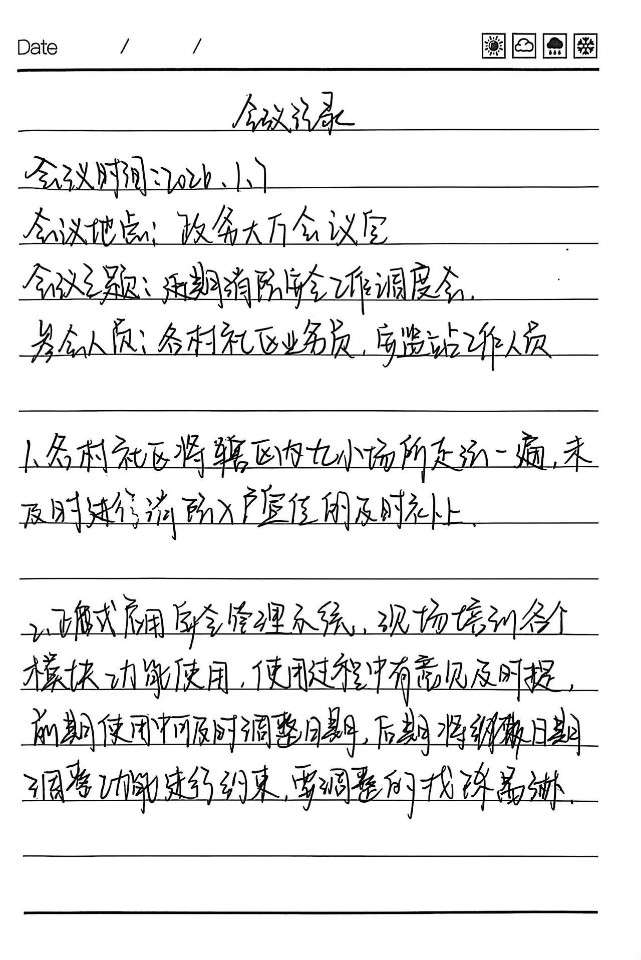 Date / /
会议记录
会议时间:2026.1.7
会议地点:政务大厅会议室
会议主题:近期消防安全工作调度会.
参会人员:各村社区业务员,安监站工作人员
1.各村社区将辖区内九小场所走访一遍,未
及时进行消防入户宣传的及时补上.
2.正式启用安全管理系统,现场培训各个
模块功能使用,使用过程中有意见及时提,
前期使用中可及时调整日期,后期将对日期
调整功能进行约束,要调整的找陈